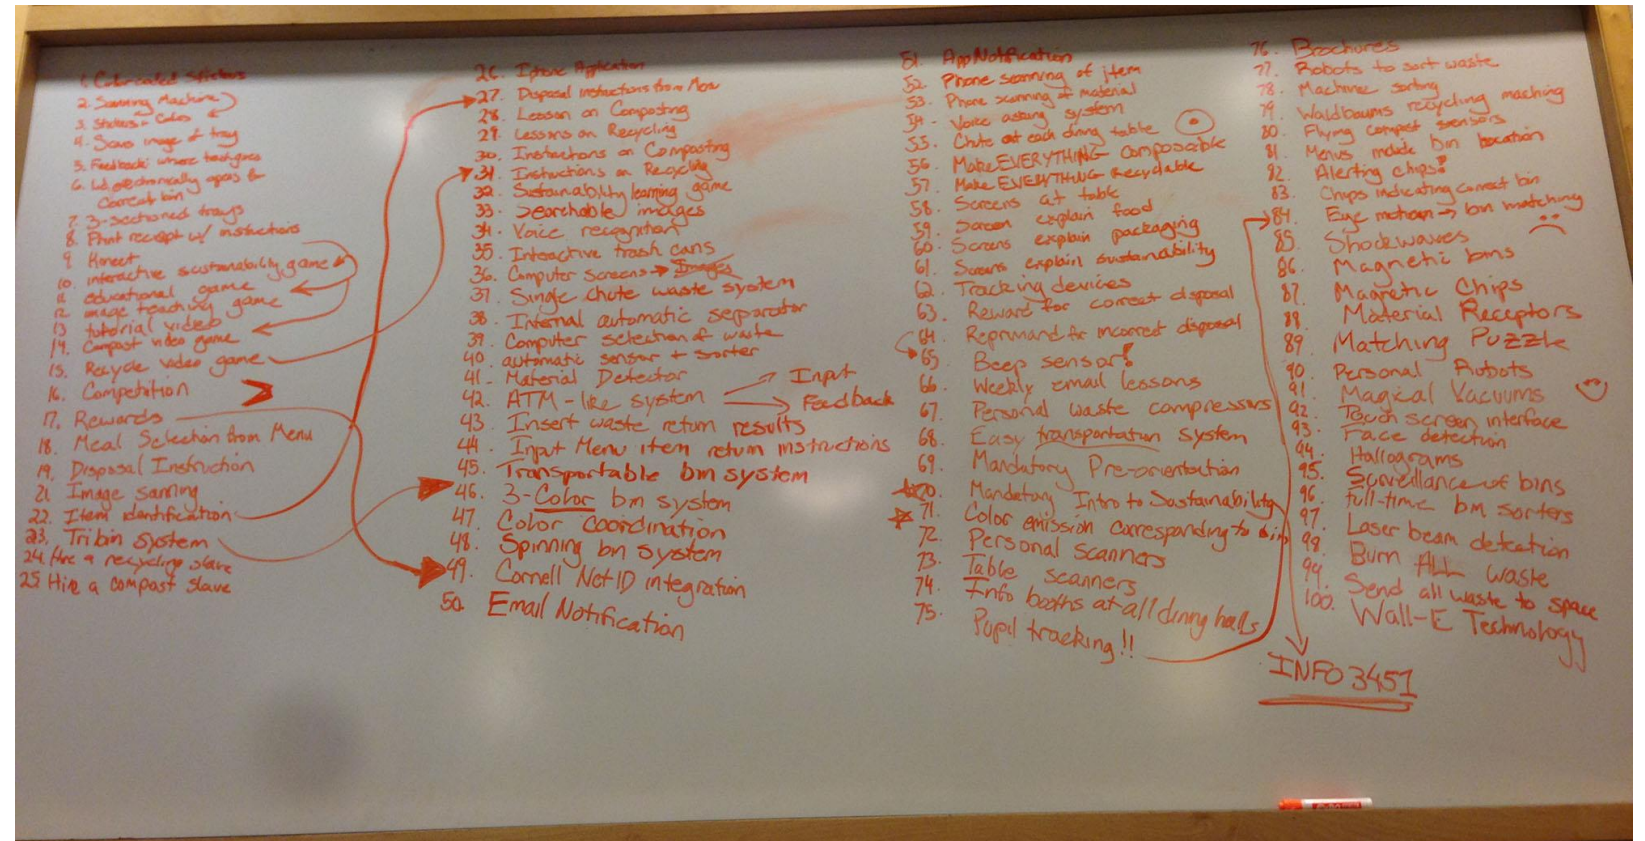 1. Color coded Stickers
2. Scanning Machine
3. Stickers + Color
4. Scans image of tray
5. Feedback: where trash goes
6. electronically opens
correct bin
7. 3-sectioned trays
8. Print receipt w/ instructions
9. Kinect
10. interactive sustainability game
11. educational game
12. image teaching game
13. tutorial video
14. Compost video game
15. Recycle video game
16. Competition
17. Rewards
18. Meal Selection from Menu
19. Disposal Instruction
21. Image Scanning
22. Item identification
23. Tribin System
24. Hire a recycling slave
25. Hire a compost slave
26. Iphone Application
27. Disposal instructions from Menu
28. Lesson on Composting
29. Lessons on Recycling
30. Instructions on Composting
31. Instructions on Recycling
32. Sustainability learning game
33. Searchable images
34. Voice recognition
35. Interactive trash cans
36. Computer screens → Images
37. Single chute waste system
38. Internal automatic separator
39. Computer selection of waste
40. automatic sensor + sorter
41. Material Detector
42. ATM-like system
Input
Feedback
43. Insert waste return results
44. Input Menu item return instructions
45. Transportable bin system
46. 3-Color bin system
47. Color coordination
48. Spinning bin system
49. Cornell NetID integration
50. Email Notification
51. App Notification
52. Phone scanning of item
53. Phone scanning of material
54. Voice asking system
55. Chute at each dining table
56. Make EVERYTHING Composable
57. Make EVERYTHING Recyclable
58. Screens at table
59. Screen explain food
60. Screens explain packaging
61. Screens explain sustainability
62. Tracking devices
63. Reward for correct disposal
64. Reprimand for incorrect disposal
65. Beep sensor!
66. Weekly email lessons
67. Personal waste compressors
68. Easy transportation system
69. Mandatory Pre-orientation
70. Mandatory Intro to Sustainability
71. Color emission corresponding to bin
72. Personal scanners
73. Table scanners
74. Info booths at all dinny halls
75. Pupil tracking!!
76. Brochures
77. Robots to sort waste
78. Machine sorting
79. Waldbaums recycling maching
80. Flying compost sensors
81. Menus include bin location
82. Alerting chips!
83. Chips indicating correct bin
84. Eye motion → bin matching
85. Shockwaves
86. Magnetic bins
87. Magnetic Chips
88. Material Receptors
89. Matching Puzzle
90. Personal Robots
91. Magical Vacuums
92. Touch screen interface
93. Face detection
94. Hallograms
95. Surveillance of bins
96. full-time bin sorters
97. Laser beam detcation
98. Burn ALL waste
99. Send all waste to space
100. Wall-E Technology
INFO 3451